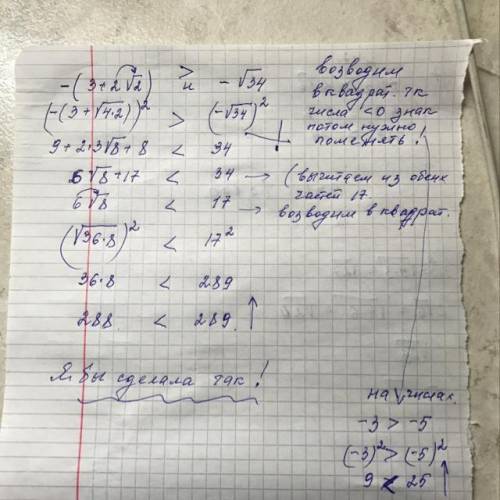 -(3+2√2) > и -√34
(-(3+√4·2))² > (-√34)²
9+2·3√8+8 < 34
6√8+17 < 34 → (вычитаем из обеих
частей 17
6√8 < 17 → возводим в квадрат.
(√36·8)² < 17²
36·8 < 289
288 < 289
Я бы сделала так!
возводим
в квадрат. тк
числа <0 знак
потом нужно
поменять!
на числах.
-3 > -5
(-3)² > (-5)²
9 < 25